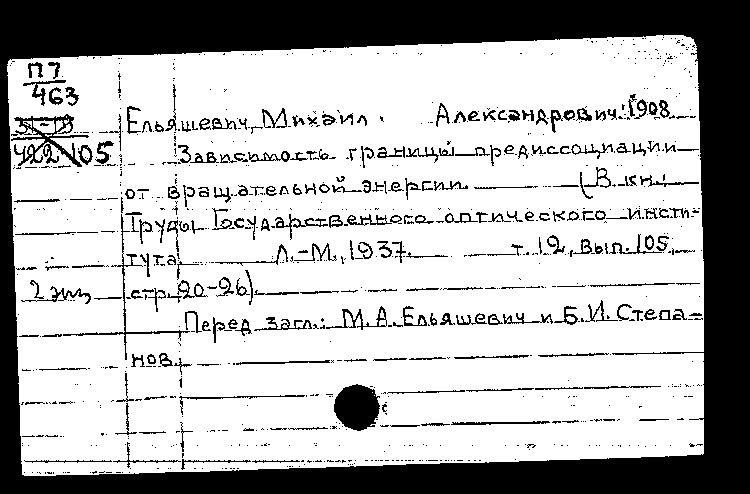 П7
463
31-19
422 105
Ельяшевич, Михаил Александрович. 1908
Зависимость границы предиссоциации
от вращательной энергии. (В кн.:
Труды Государственного оптического инсти-
тута. Л.-М., 1937. т. 12, вып. 105,
2 экз стр. 20-26).
Перед загл.: М.А. Ельяшевич и Б.И. Степа-
нов.